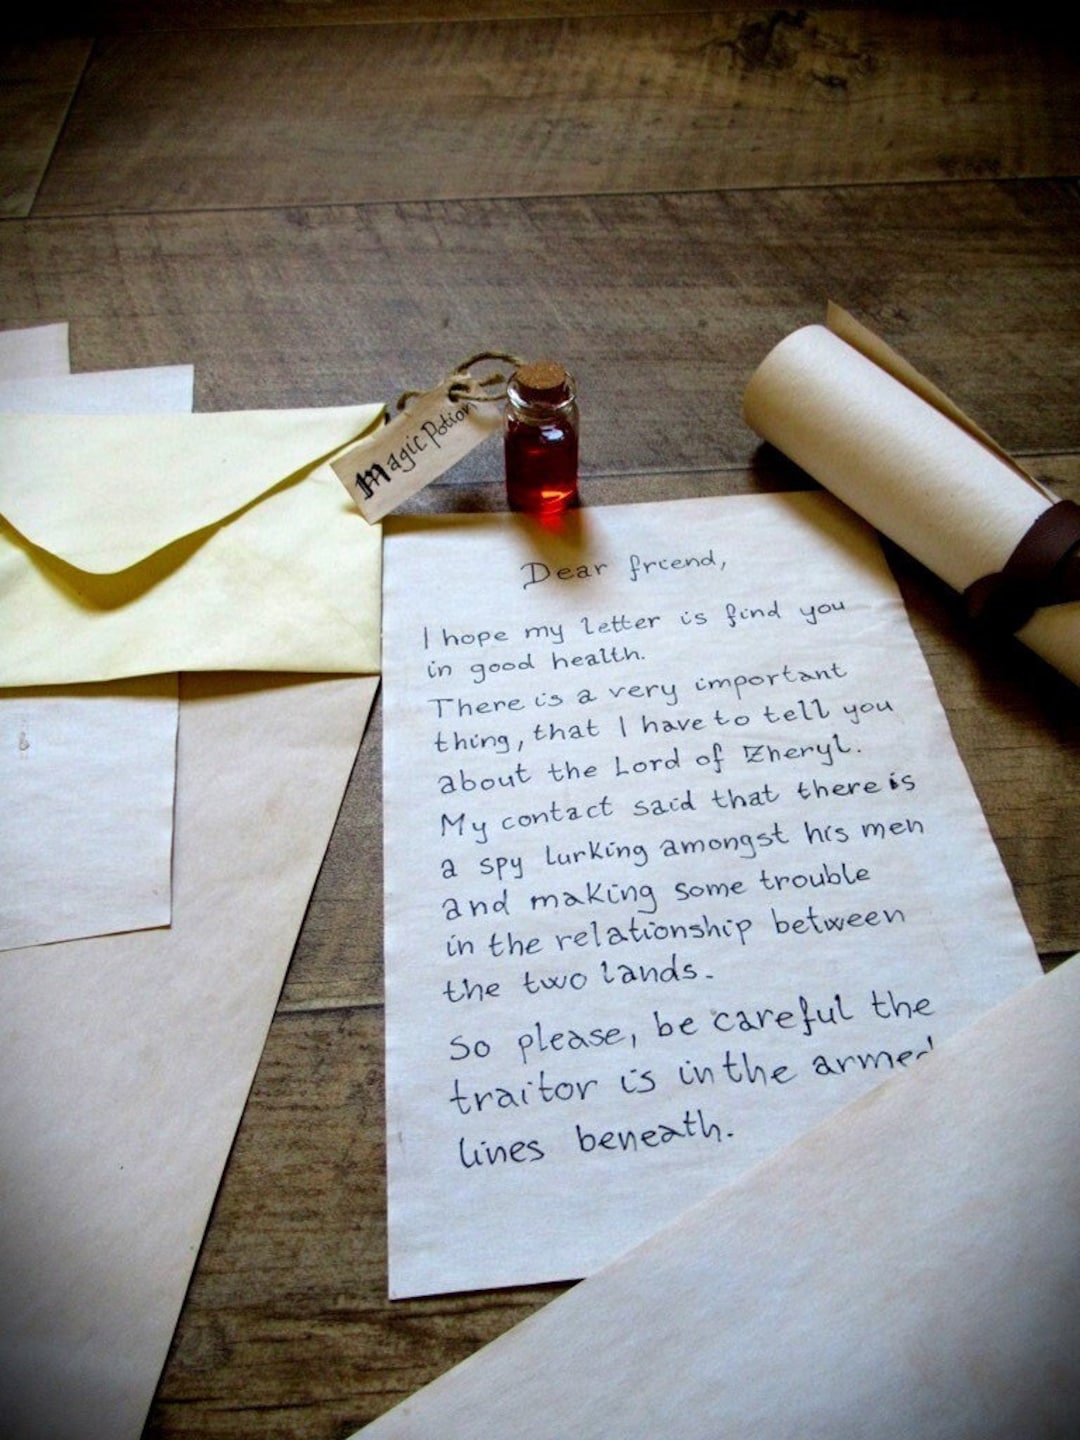 Magic Potion
Dear friend,
I hope my letter is find you
in good health.
There is a very important
thing, that I have to tell you
about the Lord of Zheryl.
My contact said that there is
a spy lurking amongst his men
and making some trouble
in the relationship between
the two lands.
So please, be careful the
traitor is in the armed
lines beneath.